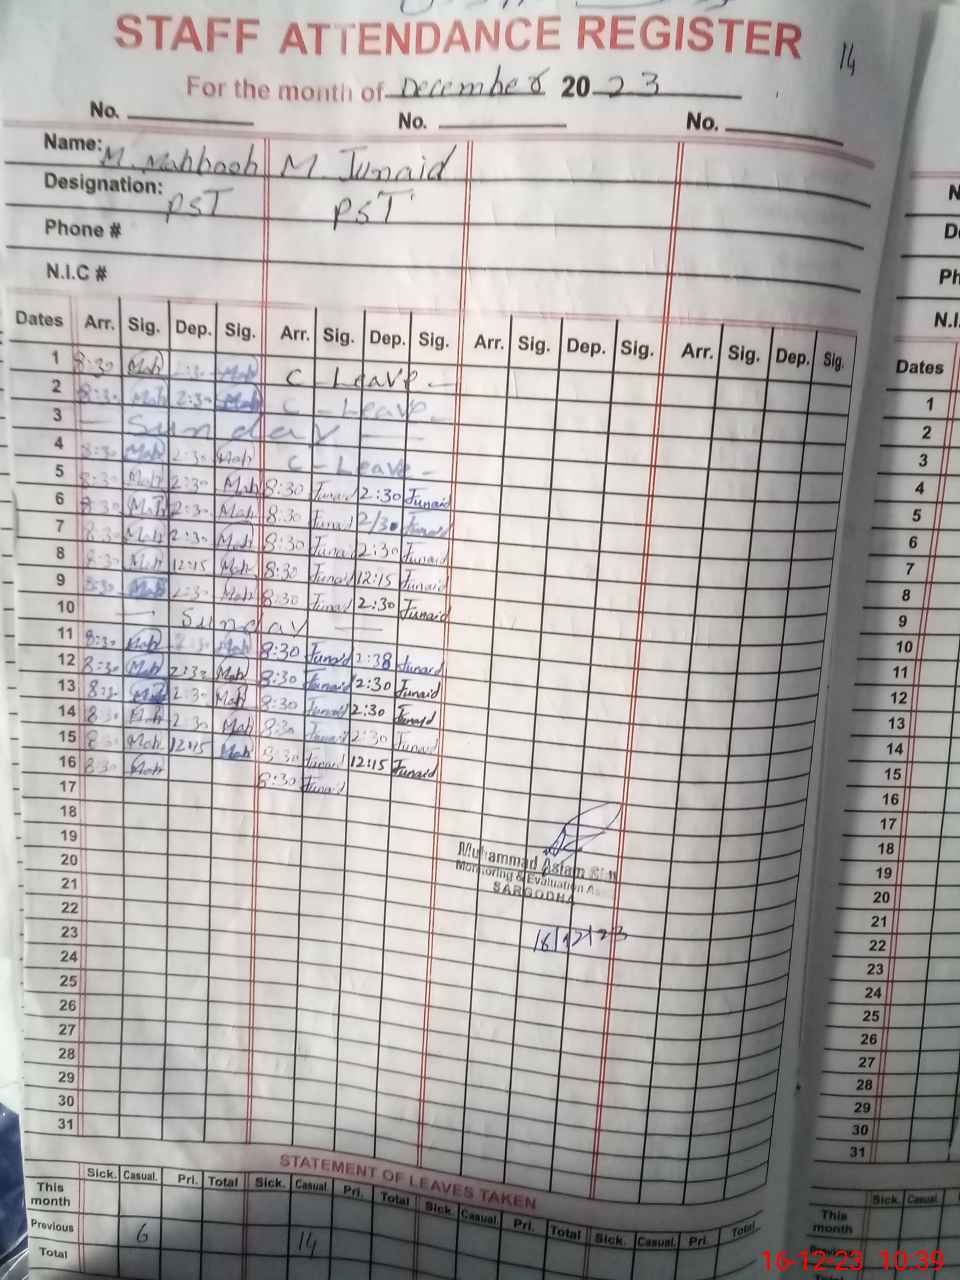 STAFF ATTENDANCE REGISTER
14
For the month of December 2023
No. No. No.
Name: M. Mahboob M Junaid
Designation: PST PST
Phone #
N.I.C #
Dates Arr. Sig. Dep. Sig. Arr. Sig. Dep. Sig. Arr. Sig. Dep. Sig. Arr. Sig. Dep. Sig.
1 8:30 Mah 2:30 Mah C - Leave -
2 8:30 Mah 2:30 Mah C - Leave -
3 - Sunday -
4 8:30 Mah 2:30 Mah C - Leave -
5 8:30 Mah 2:30 Mah 8:30 Junaid 2:30 Junaid
6 8:30 Mah 2:30 Mah 8:30 Junaid 2/30 Junaid
7 8:30 Mah 2:30 Mah 8:30 Junaid 2:30 Junaid
8 8:30 Mah 12:15 Mah 8:30 Junaid 12:15 Junaid
9 8:30 Mah 2:30 Mah 8:30 Junaid 2:30 Junaid
10 - Sunday -
11 8:30 Mah Mah 8:30 Junaid Junaid
12 8:30 Mah 2:30 Mah 8:30 Junaid 2:30 Junaid
13 8:30 Mah 2:30 Mah 8:30 Junaid 2:30 Junaid
14 8:30 Mah 2:30 Mah 8:30 Junaid 2:30 Junaid
15 8:30 Mah 12:15 Mah 8:30 Junaid 12:15 Junaid
16 8:30 Mah 8:30 Junaid
17
18
19
20
21
22
23
24
25
26
27
28
29
30
31
Muhammad Aslam
Monitoring & Evaluation
SARGODHA
16/12/23
STATEMENT OF LEAVES TAKEN
Sick. Casual. Pri. Total Sick. Casual. Pri. Total Sick. Casual. Pri. Total Sick. Casual. Pri. Total
This month
Previous 6 14
Total
N
De
Ph
N.I.
Dates
1
2
3
4
5
6
7
8
9
10
11
12
13
14
15
16
17
18
19
20
21
22
23
24
25
26
27
28
29
30
31
Sick. Casual.
This month
16-12-23 10:39